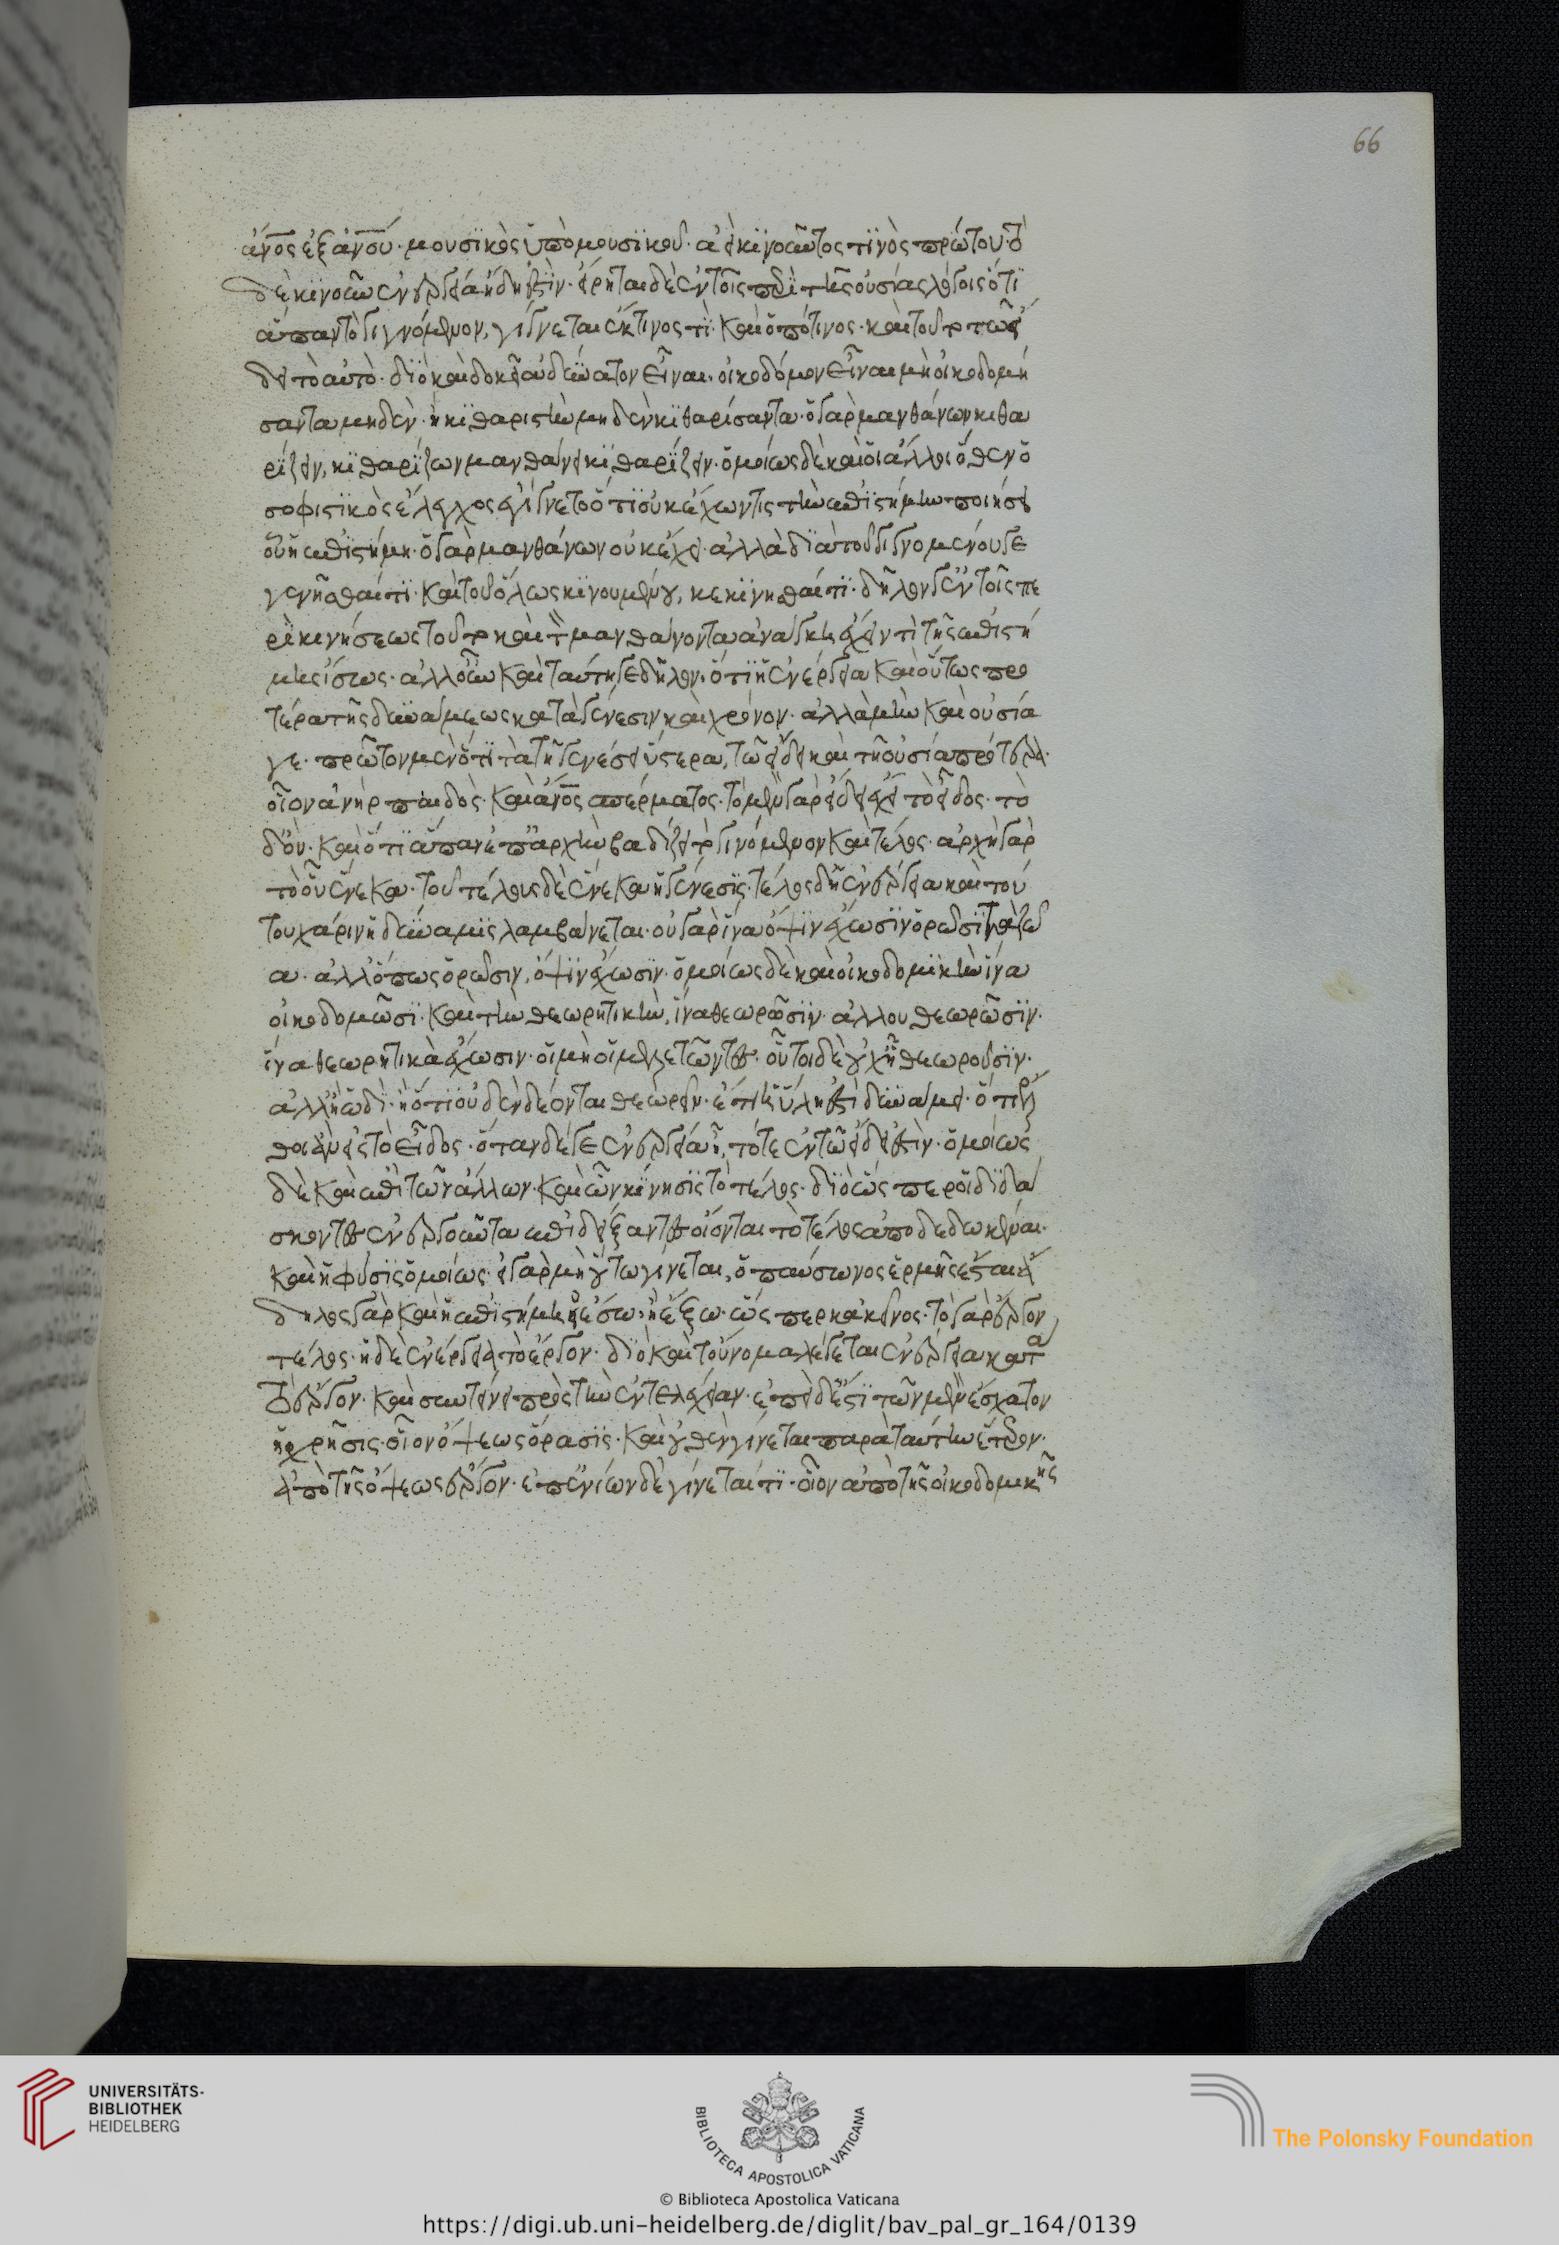 ἄν̅ος ἐξ ἀν̅ου· μουσϊκὸς ὑπὸ μουσϊκοῦ· ἀεὶ κινοῦντος τϊνὸς πρώτου· τὸ
δὲ κινοῦν ἐνεργείᾳ ἤδη ἐστὶν· εἴρηται δὲ ἐν τοῖς περὶ τῆς οὐσίας λόγοις ὅτι
ἅπαν τὸ γιγνόμενον, γίγνεται ἔκ τινος τὶ· καὶ ὑπό τινος· καὶ τοῦτο τῶ εἴ
δει τὸ αὐτὸ· διὸ καὶ δοκεῖ ἀδύνατον εἶναι, οἰκοδόμον εἶναι μὴ οἰκοδομή
σαντα μηδὲν· ἢ κϊθαριστὴν μηδὲν κϊθαρίσαντα· ὁ γὰρ μανθάνων κιθα
ρίζειν, κϊθαρίζων μανθάνει κϊθαρίζειν· ὁμοίως δὲ καὶ οἱ ἄλλοι ὅθεν ὁ
σοφιστϊκὸς ἔλεγχος ἐγίγνετο ὅτι οὐκ ἔχων τις τὴν ἐπϊστήμην ποιήσει
οὗ ἡ ἐπϊστήμη· ὁ γὰρ μανθάνων οὐκ ἔχει· ἀλλὰ διὰ τοῦ γιγνομένου γε
γενῆσθαί τϊ· καὶ τοῦ ὅλως κϊνουμένου, κεκϊνῆσθαί τϊ· δῆλον δ' ἐν τοῖς πε
ρὶ κινήσεως τοῦτο καὶ τὸν μανθάνοντα ἀνάγκη ἔχειν τὶ τῆς ἐπιστή
μης ἴσως· ἀλλ' οὖν καὶ ταύτη γε δῆλον, ὅτι ἡ ἐνέργεια καὶ οὕτως προ
τέρα τῆς δυνάμεως κατὰ γένεσιν καὶ χρόνον· ἀλλὰ μὴν καὶ οὐσία
γε· πρῶτον μὲν ὅτι τὰ τῆ γενέσει ὕστερα, τῶ εἴδει καὶ τῆ οὐσία πρότερα·
οἷον ἀνὴρ παιδὸς· καὶ ἄν̅ος σπέρματος· τὸ μὲν γὰρ ἤδη ἔχει τὸ εἶδος· τὸ
δ' οὔ· καὶ ὅτι ἅπαν ἐπ' ἀρχὴν βαδίζει τὸ γινόμενον καὶ τέλος· ἀρχὴ γὰρ
τὸ οὗ ἕνεκα· τοῦ τέλους δὲ ἕνεκα ἡ γένεσϊς· τέλος δ' ἡ ἐνέργεια καὶ τού
του χάριν ἡ δύναμϊς λαμβάνεται· οὐ γὰρ ἵνα ὄψϊν ἔχωσϊν ὁρῶσϊ τὰ ζῶ
α· ἀλλ' ὅπως ὁρῶσιν, ὄψϊν ἔχωσϊν· ὁμοίως δὲ καὶ οἰκοδομϊκὴν ἵνα
οἰκοδομῶσϊ· καὶ τὴν θεωρητικὴν, ἵνα θεωρῶσϊν· ἀλλ' οὐ θεωρῶσϊν·
ἵνα θεωρητικὰ ἔχωσιν· οἱ μὴ οἱ μελετῶντες· οὗτοι δὲ οὐχὶ θεωροῦσϊν·
ἀλλ' ἢ ὡδὶ· ἢ ὅτι οὐδὲν δέονται θεωρεῖν· ἔτι ἡ ὕλη ἐστὶ δυνάμει· ὅτι ἔλ
θοι ἂν εἰς τὸ εἶδος· ὅταν δέ γε ἐνεργεία ᾖ, τότε ἐν τῶ εἴδει ἐστὶν· ὁμοίως
δὲ καὶ ἐπὶ τῶν ἄλλων· καὶ ὧν κίνησϊς τὸ τέλος· διὸ ὥσπερ οἱ διδά
σκοντες ἐνεργοῦντα ἐπιδείξαντες οἴονται τὸ τέλος ἀποδεδωκέναι·
καὶ ἡ φύσϊς ὁμοίως· εἰ γὰρ μὴ οὕτω γίνεται, ὁ παύσωνος ἑρμῆς ἔσται· ἄ
δηλος γὰρ καὶ ἡ ἐπιστήμη εἰ ἔσω· ἢ ἔξω· ὥσπερ κἀκεῖνος· τὸ γὰρ ἔργον
τέλος· ἡ δὲ ἐνέργεια τὸ ἔργον· διὸ καὶ τοὔνομα λέγεται ἐνέργεια κατὰ
τὸ ἔργον· καὶ συντείνει πρὸς τὴν ἐντελέχειαν· ἐπεὶ δ' ἐστὶ τῶν μὲν ἔσχατον
ἡ χρῆσις· οἷον ὄψεως ὅρασϊς· καὶ οὐθὲν γίνεται παρὰ ταύτην ἕτερον·
ἀπὸ τῆς ὄψεως ἔργον· ἐπ' ἐνίων δὲ γίνεταί τϊ· οἷον ἀπὸ τῆς οἰκοδομικῆς
66
UNIVERSITÄTS-
BIBLIOTHEK
HEIDELBERG
BIBLIOTECA APOSTOLICA VATICANA
The Polonsky Foundation
© Biblioteca Apostolica Vaticana
https://digi.ub.uni-heidelberg.de/diglit/bav_pal_gr_164/0139